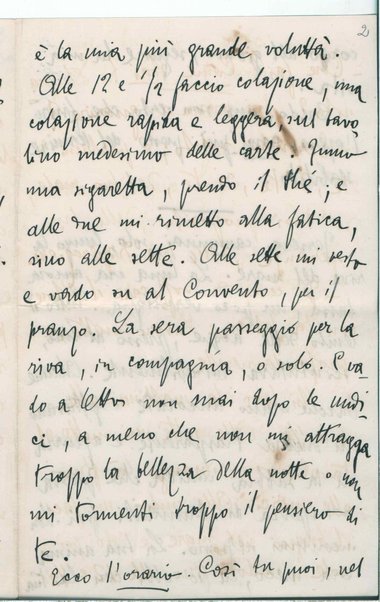 2
è la mia più grande voluttà.
Alle 12 e 1/2 faccio colazione, una
colazione rapida e leggera, sul tavo
lino medesimo delle carte. Fumo
una sigaretta, prendo il thé; e
alle due mi rimetto alla fatica,
sino alle sette. Alle sette mi vesto
e vado su al Convento, per il
pranzo. La sera, passeggio per la
riva, in compagnia, o solo. E va-
do a letto non mai dopo le undi
ci, a meno che non mi attragga
troppo la bellezza della notte o non
mi tormenti troppo il pensiero di
te.
Ecco l'orario. Così tu puoi, nel